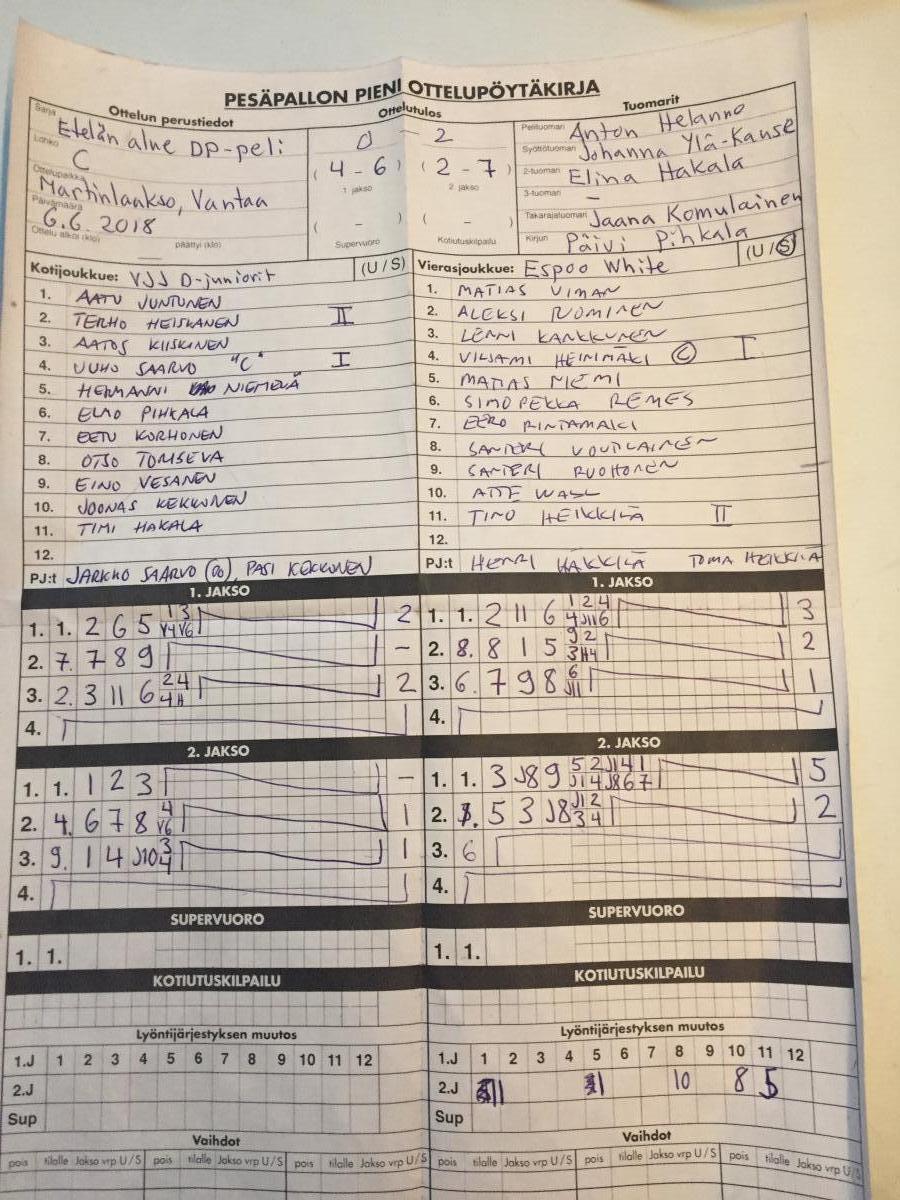 PESÄPALLON PIENI OTTELUPÖYTÄKIRJA
Ottelun perustiedot
Ottelutulos
Tuomarit
Sarja Etelän alue DP-peli
0 - 2
Pelituomari Anton Helanne
Lohko C
Syöttötuomari Johanna Ylä-Kause
Ottelupaikka Martinlaakso, Vantaa
(4 - 6) 1. jakso
(2 - 7) 2. jakso
2-tuomari Elina Hakala
3-tuomari –
Päivämäärä 6.6.2018
( - ) Supervuoro
( - ) Kotiutuskilpailu
Takarajatuomari Jaana Komulainen
Ottelu alkoi (klo) päättyi (klo)
Kirjuri Päivi Pihkala
Kotijoukkue: VJS D-juniorit (U / S)
1. AATU JUNTUNEN
2. TERHO HEISKANEN II
3. AATOS KIISKINEN
4. UUHO SAARVO "C" I
5. HERMANNI NIEMELÄ
6. ELMO PIHKALA
7. EETU KORHONEN
8. OTSO TORISEVA
9. EINO VESANEN
10. JOONAS KEKKONEN
11. TIMI HAKALA
12.
PJ:t JARKKO SAARVO PASI KEKKONEN
Vierasjoukkue: Espoo White (U / S)
1. MATIAS VIMAN
2. ALEKSI NOMINEN
3. LENNI KANKKUNEN
4. VILJAMI HEINIMÄKI C I
5. MATIAS NIEMI
6. SIMO PEKKA REMES
7. EERO RINTAMAKI
8. SANTERI VOUTILAINEN
9. SANTERI RUOHONEN
10. ATTE
11. TIMO HEIKKILÄ II
12.
PJ:t HENRI HÄKKILÄ TOMA HEIKKILÄ
1. JAKSO
1. 1. 2 6 5 1 3 V4 V6 2
2. 7. 7 8 9 –
3. 2. 3 11 6 24 4H 2
4.
1. JAKSO
1. 1. 2 11 6 1 2 4 4 J11 6 3
2. 8. 8 1 5 9 2 3 H4 2
3. 6. 7 9 8 6 J11 1
4.
2. JAKSO
1. 1. 1 2 3 –
2. 4. 6 7 8 4 V6 1
3. 9. 1 4 J10 3 4 1
4.
2. JAKSO
1. 1. 3 J8 9 5 2 J14 1 J14 J8 6 7 5
2. 5 3 J8 J1 2 3 4 2
3. 6
4.
SUPERVUORO
1. 1.
SUPERVUORO
1. 1.
KOTIUTUSKILPAILU
KOTIUTUSKILPAILU
Lyöntijärjestyksen muutos
1.J 1 2 3 4 5 6 7 8 9 10 11 12
2.J
Sup
Lyöntijärjestyksen muutos
1.J 1 2 3 4 5 6 7 8 9 10 11 12
2.J 11 1 10 8 5
Sup
Vaihdot
pois tilalle Jakso vrp U / S pois tilalle Jakso vrp U / S pois tilalle Jakso vrp U / S
Vaihdot
pois tilalle Jakso vrp U / S pois tilalle Jakso vrp U / S pois tilalle Jakso vrp U / S